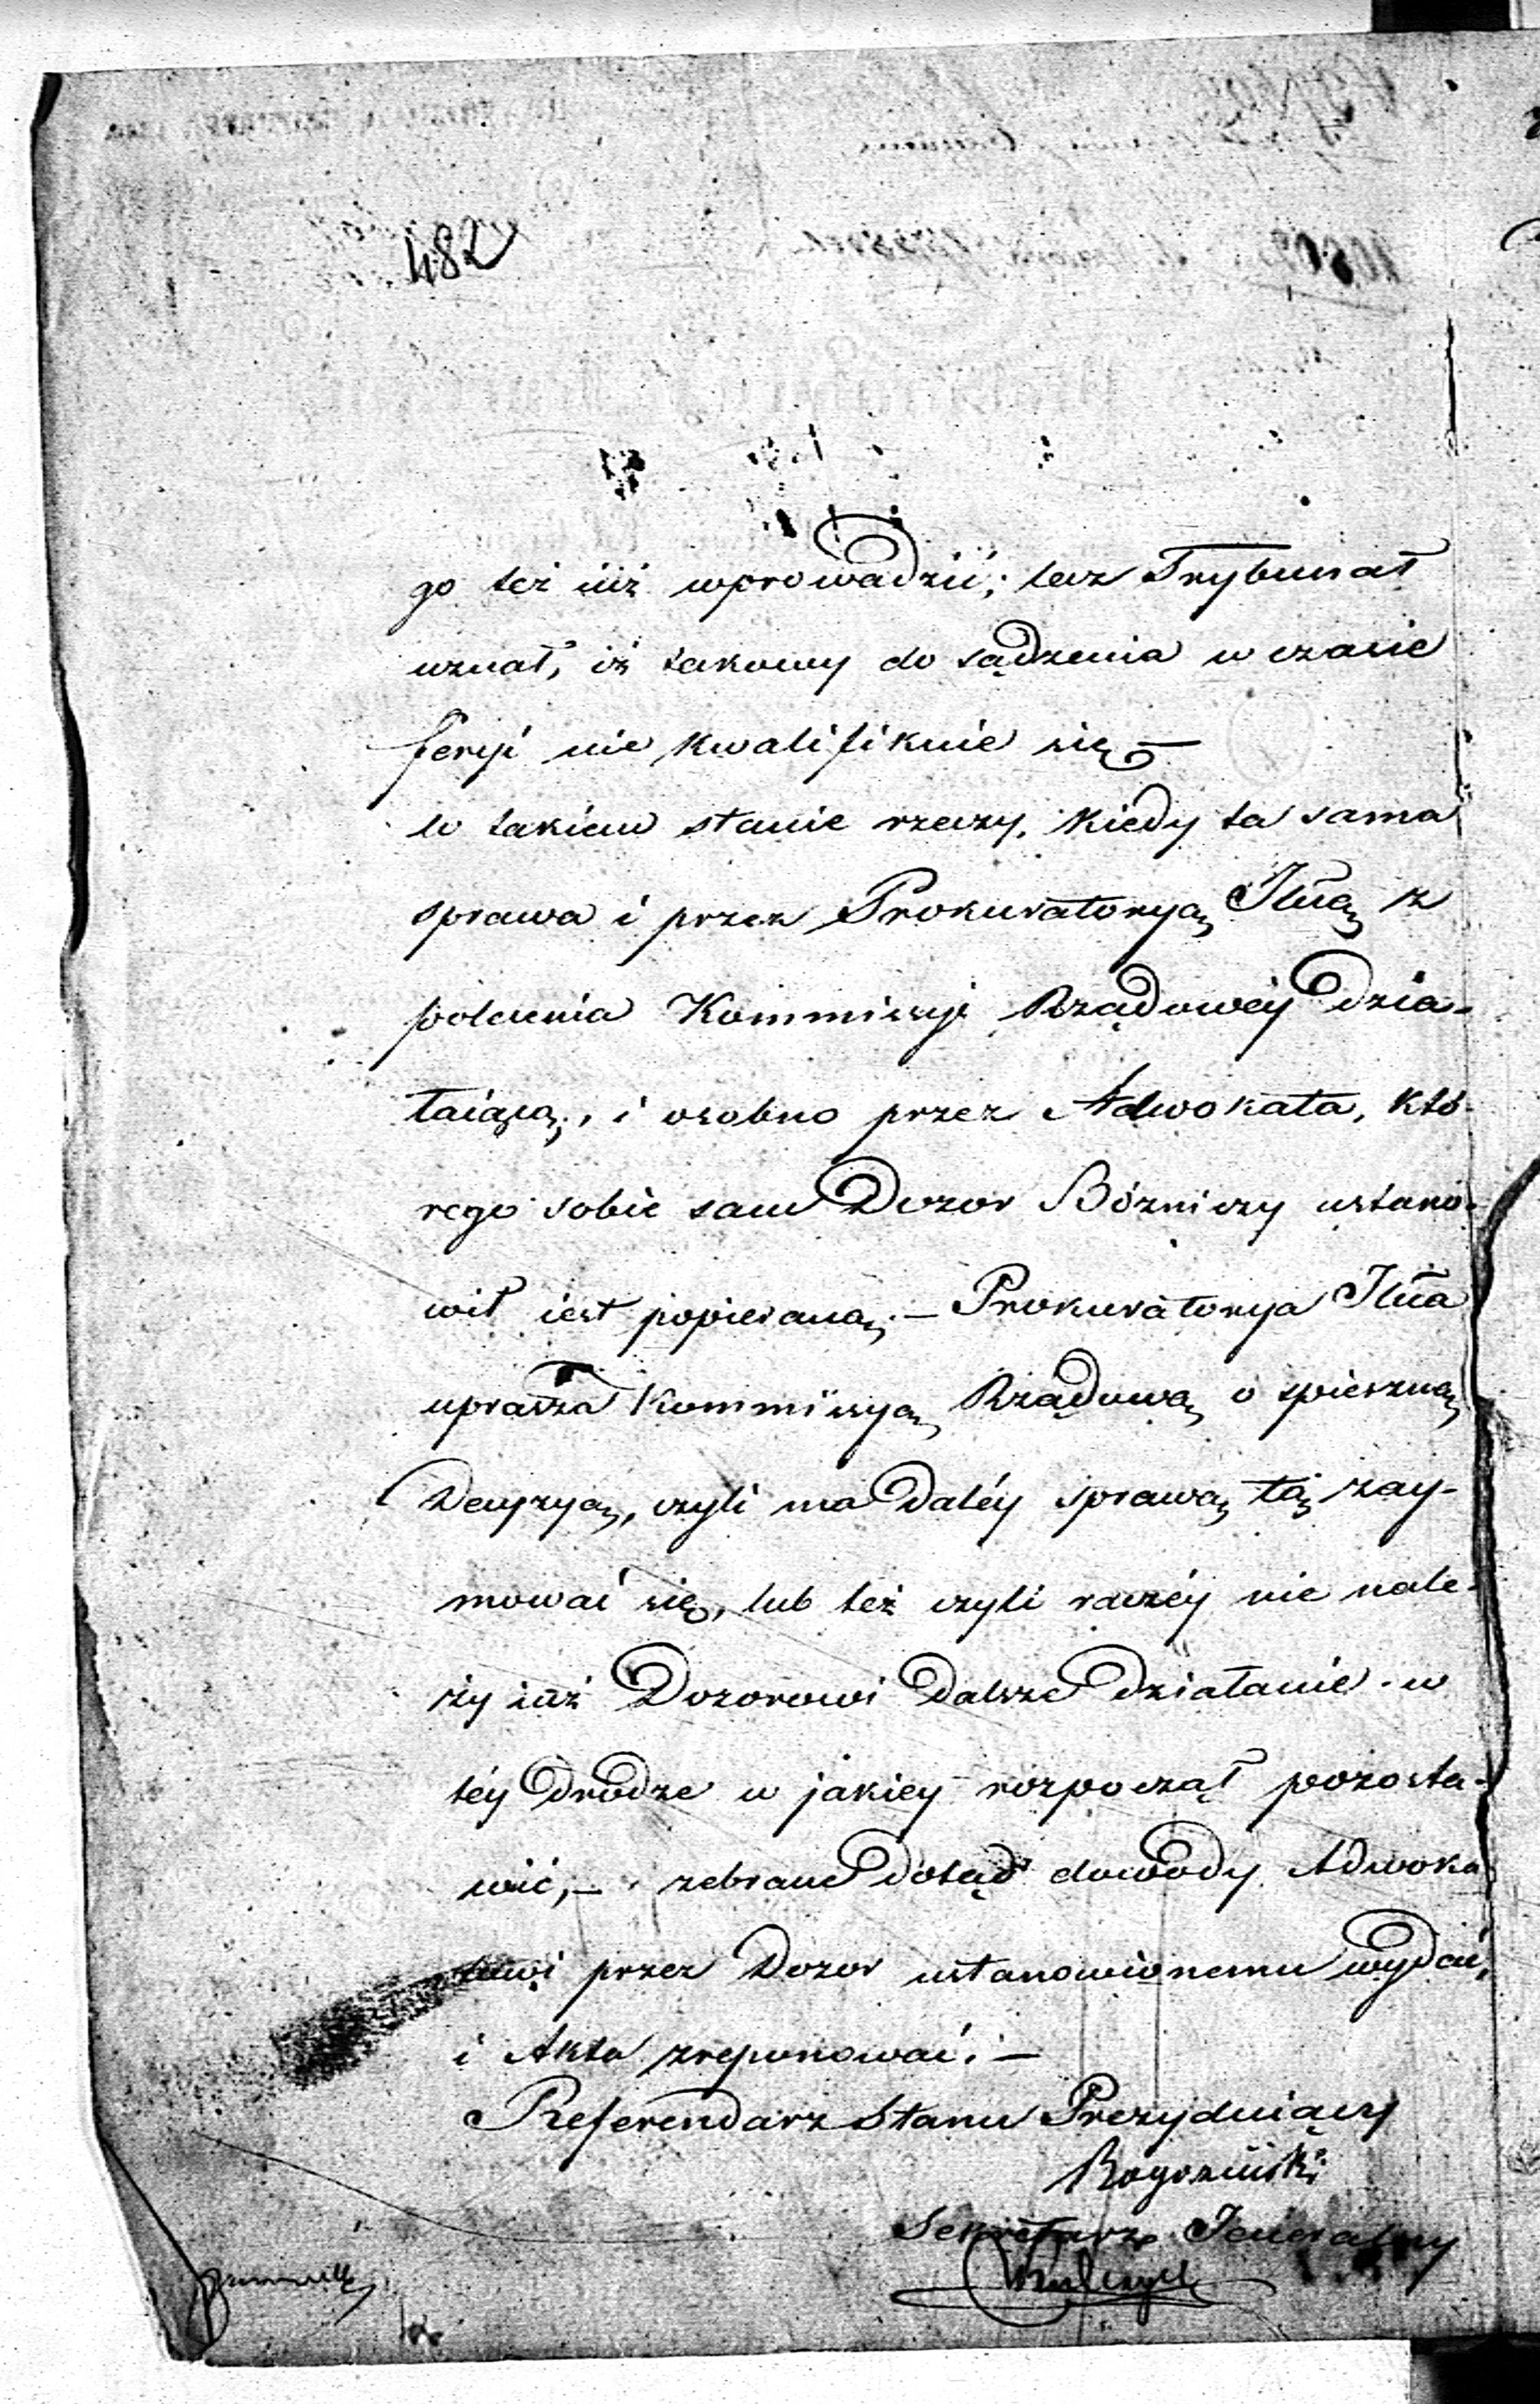 482
go też iiż wprowadzić; lecz Trybunał
uznał, iż takowy do sądzenia w czasie
feryi nie kwalifikuie się —
W takiem stanie rzeczy, kiedy ta sama
sprawa i przez Prokuratoryą Jłną z
polecenia Kommissyi Rządowéy dzia-
łaiącą, i osobno przez Adwokata, któ-
rego sobie sam Dozor Bóżniczy ustano-
wił iest popieraną; — Prokuratorya Jłna
uprasza Kommissyą Rządową o spieszną
Decyzyą, czyli ma daléy sprawą tą zay-
mować się, lub też czyli raczéy nie nale-
ży iuż Dozorowi dalsze działanie w
téy drodze w jakiey rozpoczął pozosta-
wić, — zebrane dotąd dowody Adwoka
towi przez Dozor ustanowionemu wydać,
i Akta zreponować. —
Referendarz Stanu Prezyduiący
Sekretarz Jeneralny